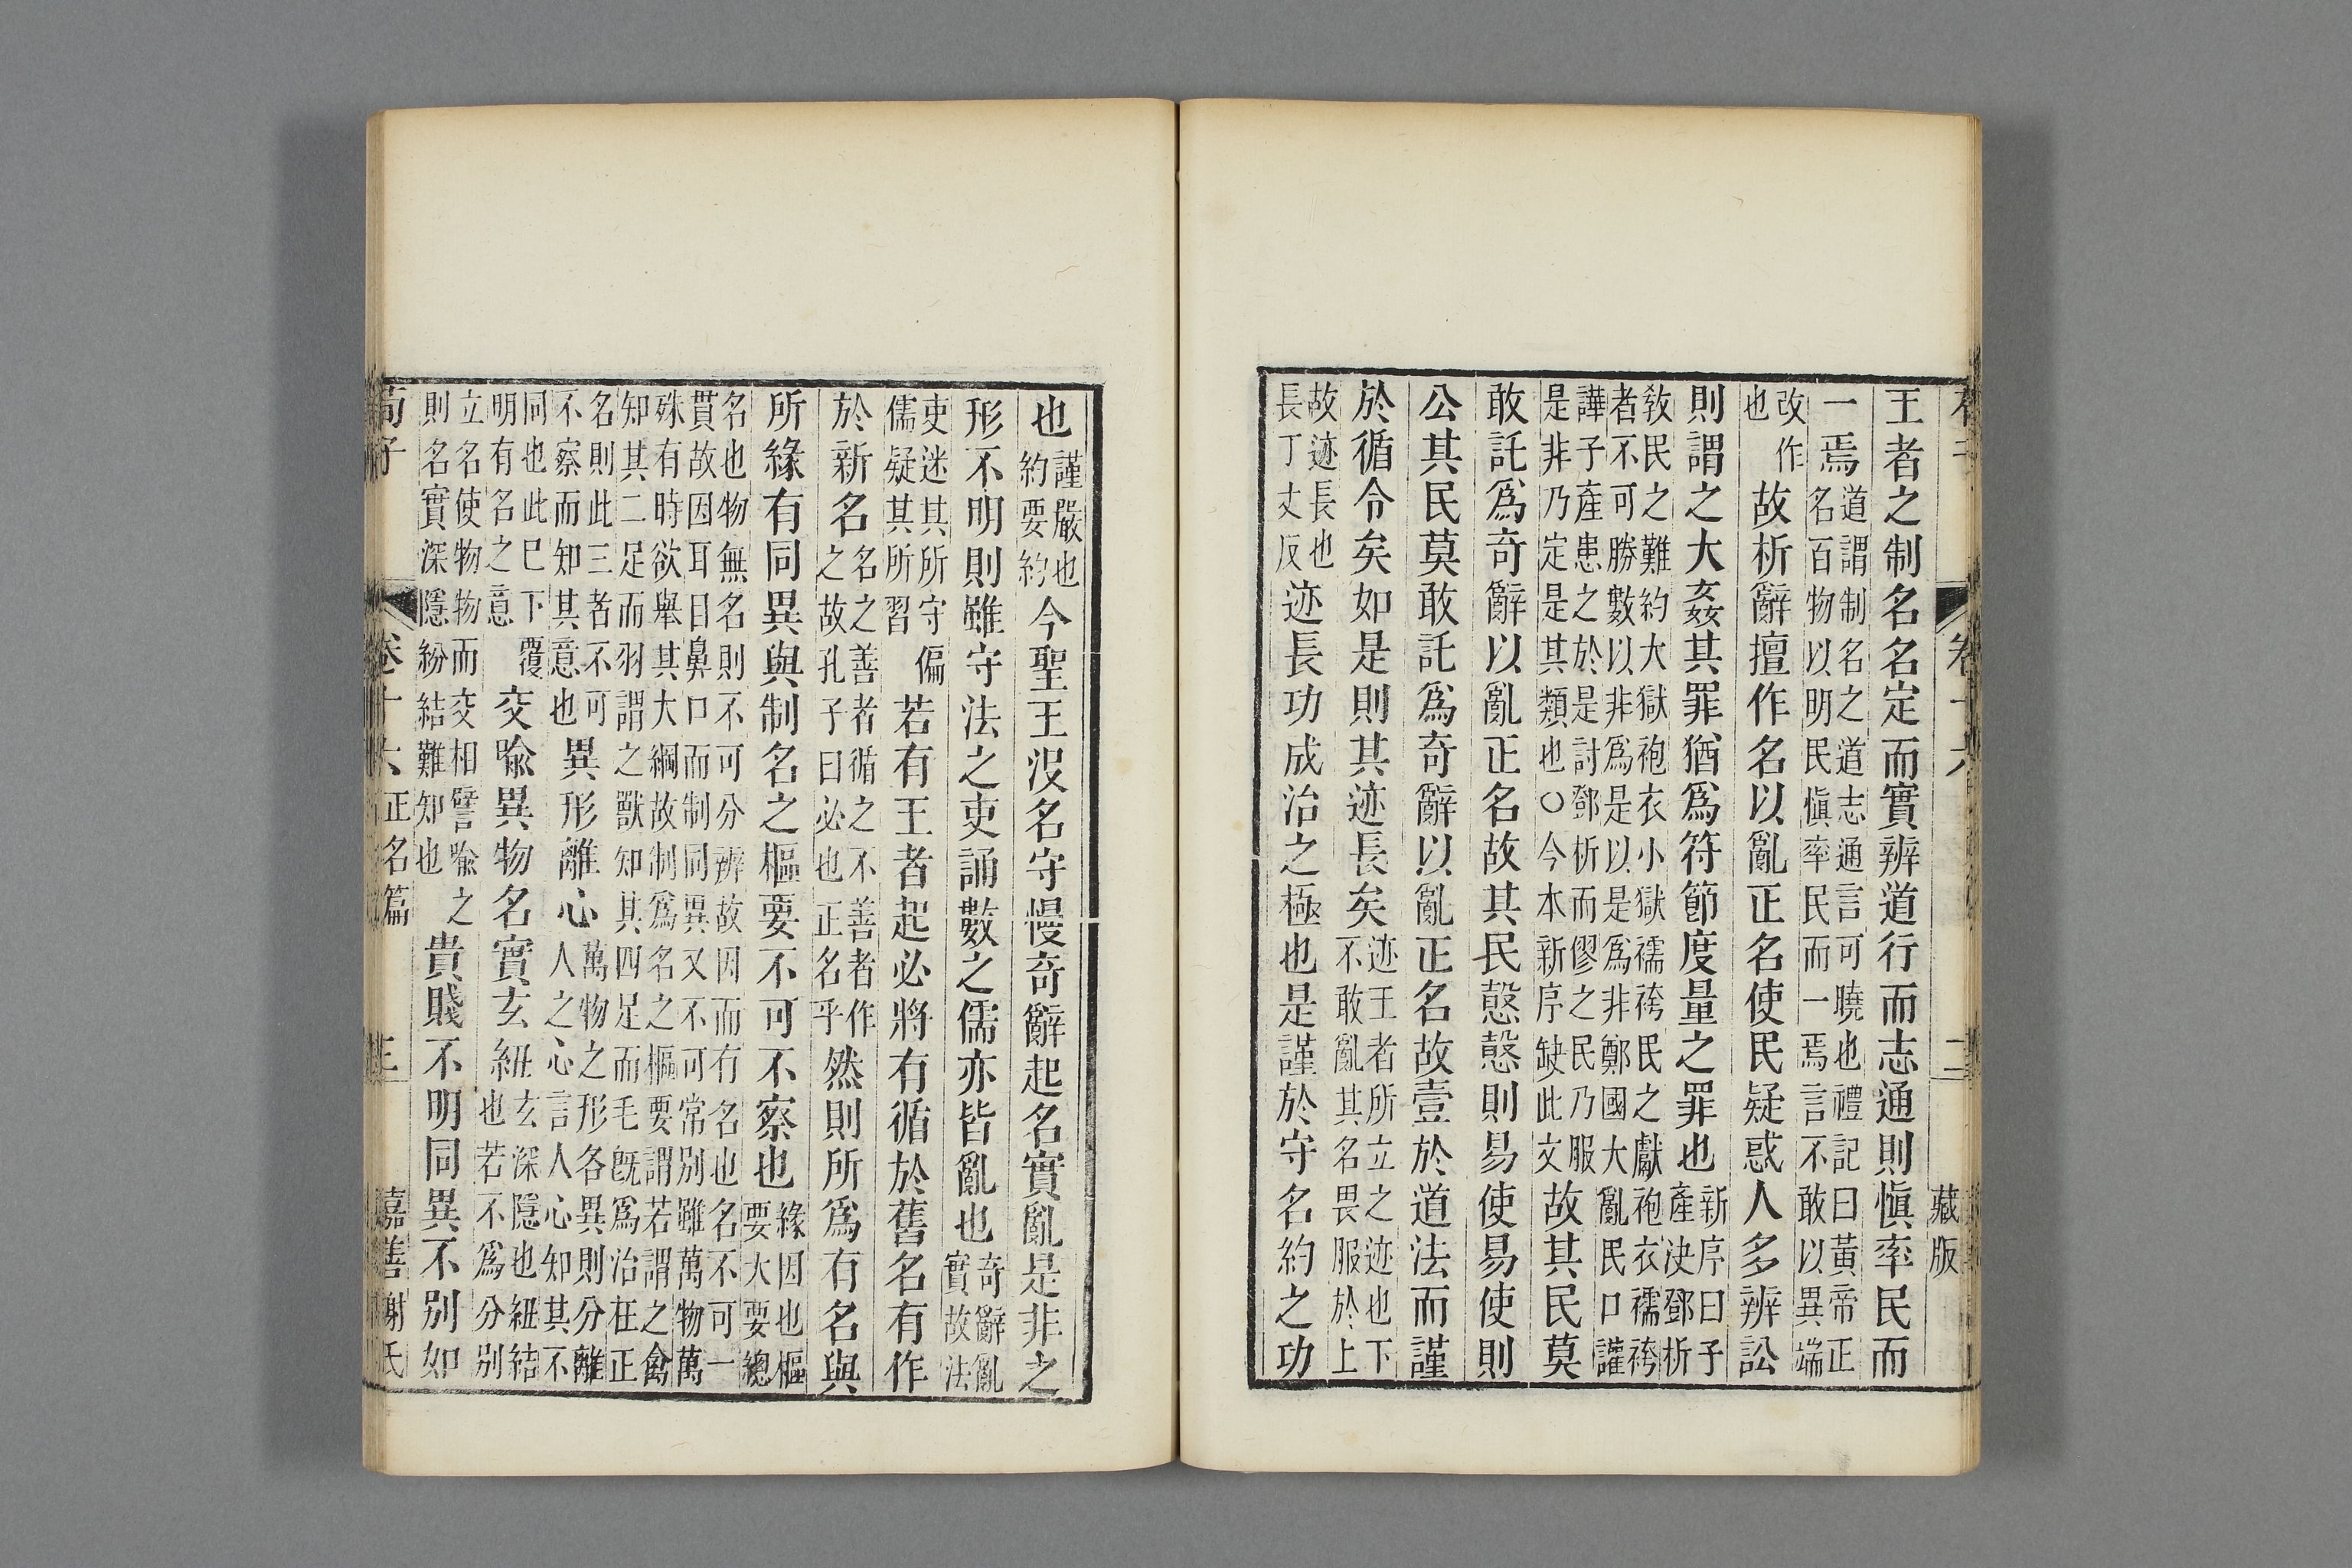 卷十六 二 藏版
王者之制名名定而實辨道行而志通則愼率民而
一焉道謂制名之道志通言可曉也禮記曰黃帝正名百物以明民愼率民而一焉言不敢以異端
改作也故析辭擅作名以亂正名使民疑惑人多辨訟
則謂之大姦其罪猶爲符節度量之罪也新序曰子產決鄧析
敎民之難約大獄袍衣小獄襦袴民之獻袍衣襦袴者不可勝數以非爲是以是爲非鄭國大亂民口讙
譁子產患之於是討鄧析而僇之民乃服是非乃定是其類也○今本新序缺此文故其民莫
敢託爲奇辭以亂正名故其民愨愨則易使易使則
公其民莫敢託爲奇辭以亂正名故壹於道法而謹
於循令矣如是則其迹長矣迹王者所立之迹也下不敢亂其名畏服於上
故迹長也長丁丈反迹長功成治之極也是謹於守名約之功
也謹嚴也約要約今聖王沒名守慢奇辭起名實亂是非之
形不明則雖守法之吏誦數之儒亦皆亂也奇辭亂實故法
吏迷其所守偏儒疑其所習若有王者起必將有循於舊名有作
於新名名之善者循之不善者作之故孔子曰必也正名乎然則所爲有名與
所緣有同異與制名之樞要不可不察也緣因也樞要大要總
名也物無名則不可分辨故因而有名也名不可一貫故因耳目鼻口而制同異又不可常別雖萬物萬
殊有時欲舉其大綱故制爲名之樞要謂若謂之禽知其二足而羽謂之獸知其四足而毛旣爲治在正
名則此三者不可不察而知其意也異形離心萬物之形各異則分離人之心言人心知其不
同也此巳下覆明有名之意交喩異物名實玄紐玄深隱也紐結也若不爲分別
立名使物物而交相譬喩之則名實深隱紛結難知也貴賤不明同異不別如
荀子 卷十六 正名篇 三 嘉善謝氏